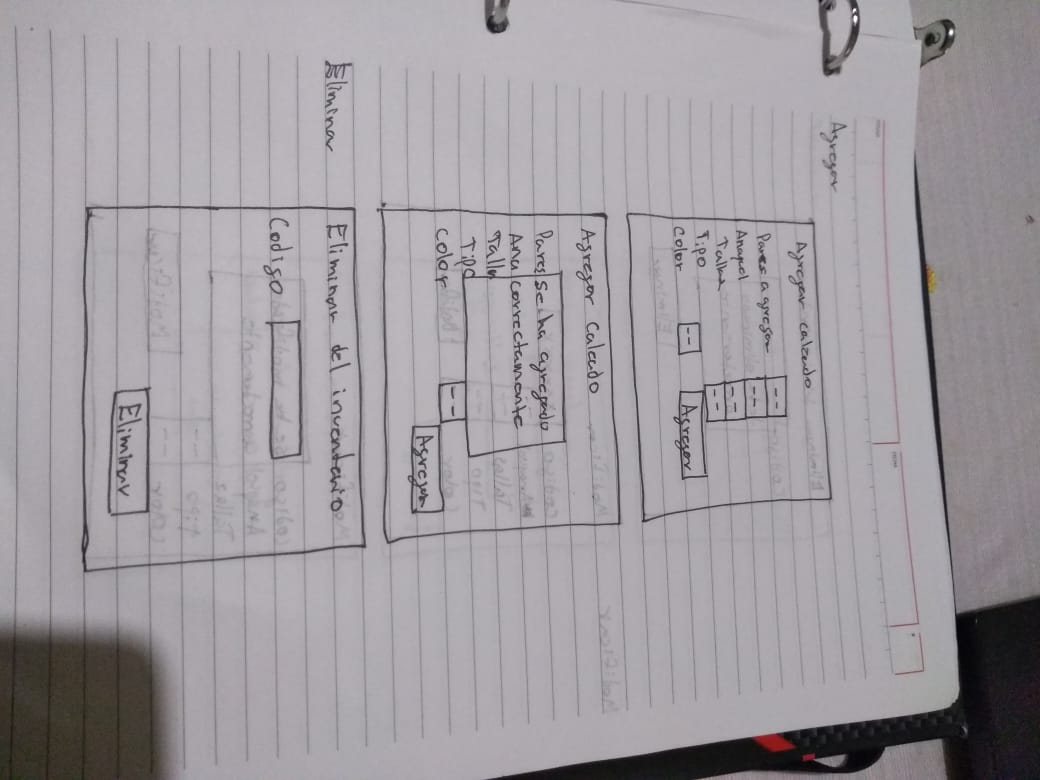 Agregar
Agregar calzado
Pares a agregar --
Anaquel --
Talla --
Tipo --
Color --
Agregar
Agregar Calzado
Pares Se ha agregado
Ana correctamente
Talla
Tipo
Color --
Agregar
Eliminar
Eliminar del inventario
Codigo
Eliminar